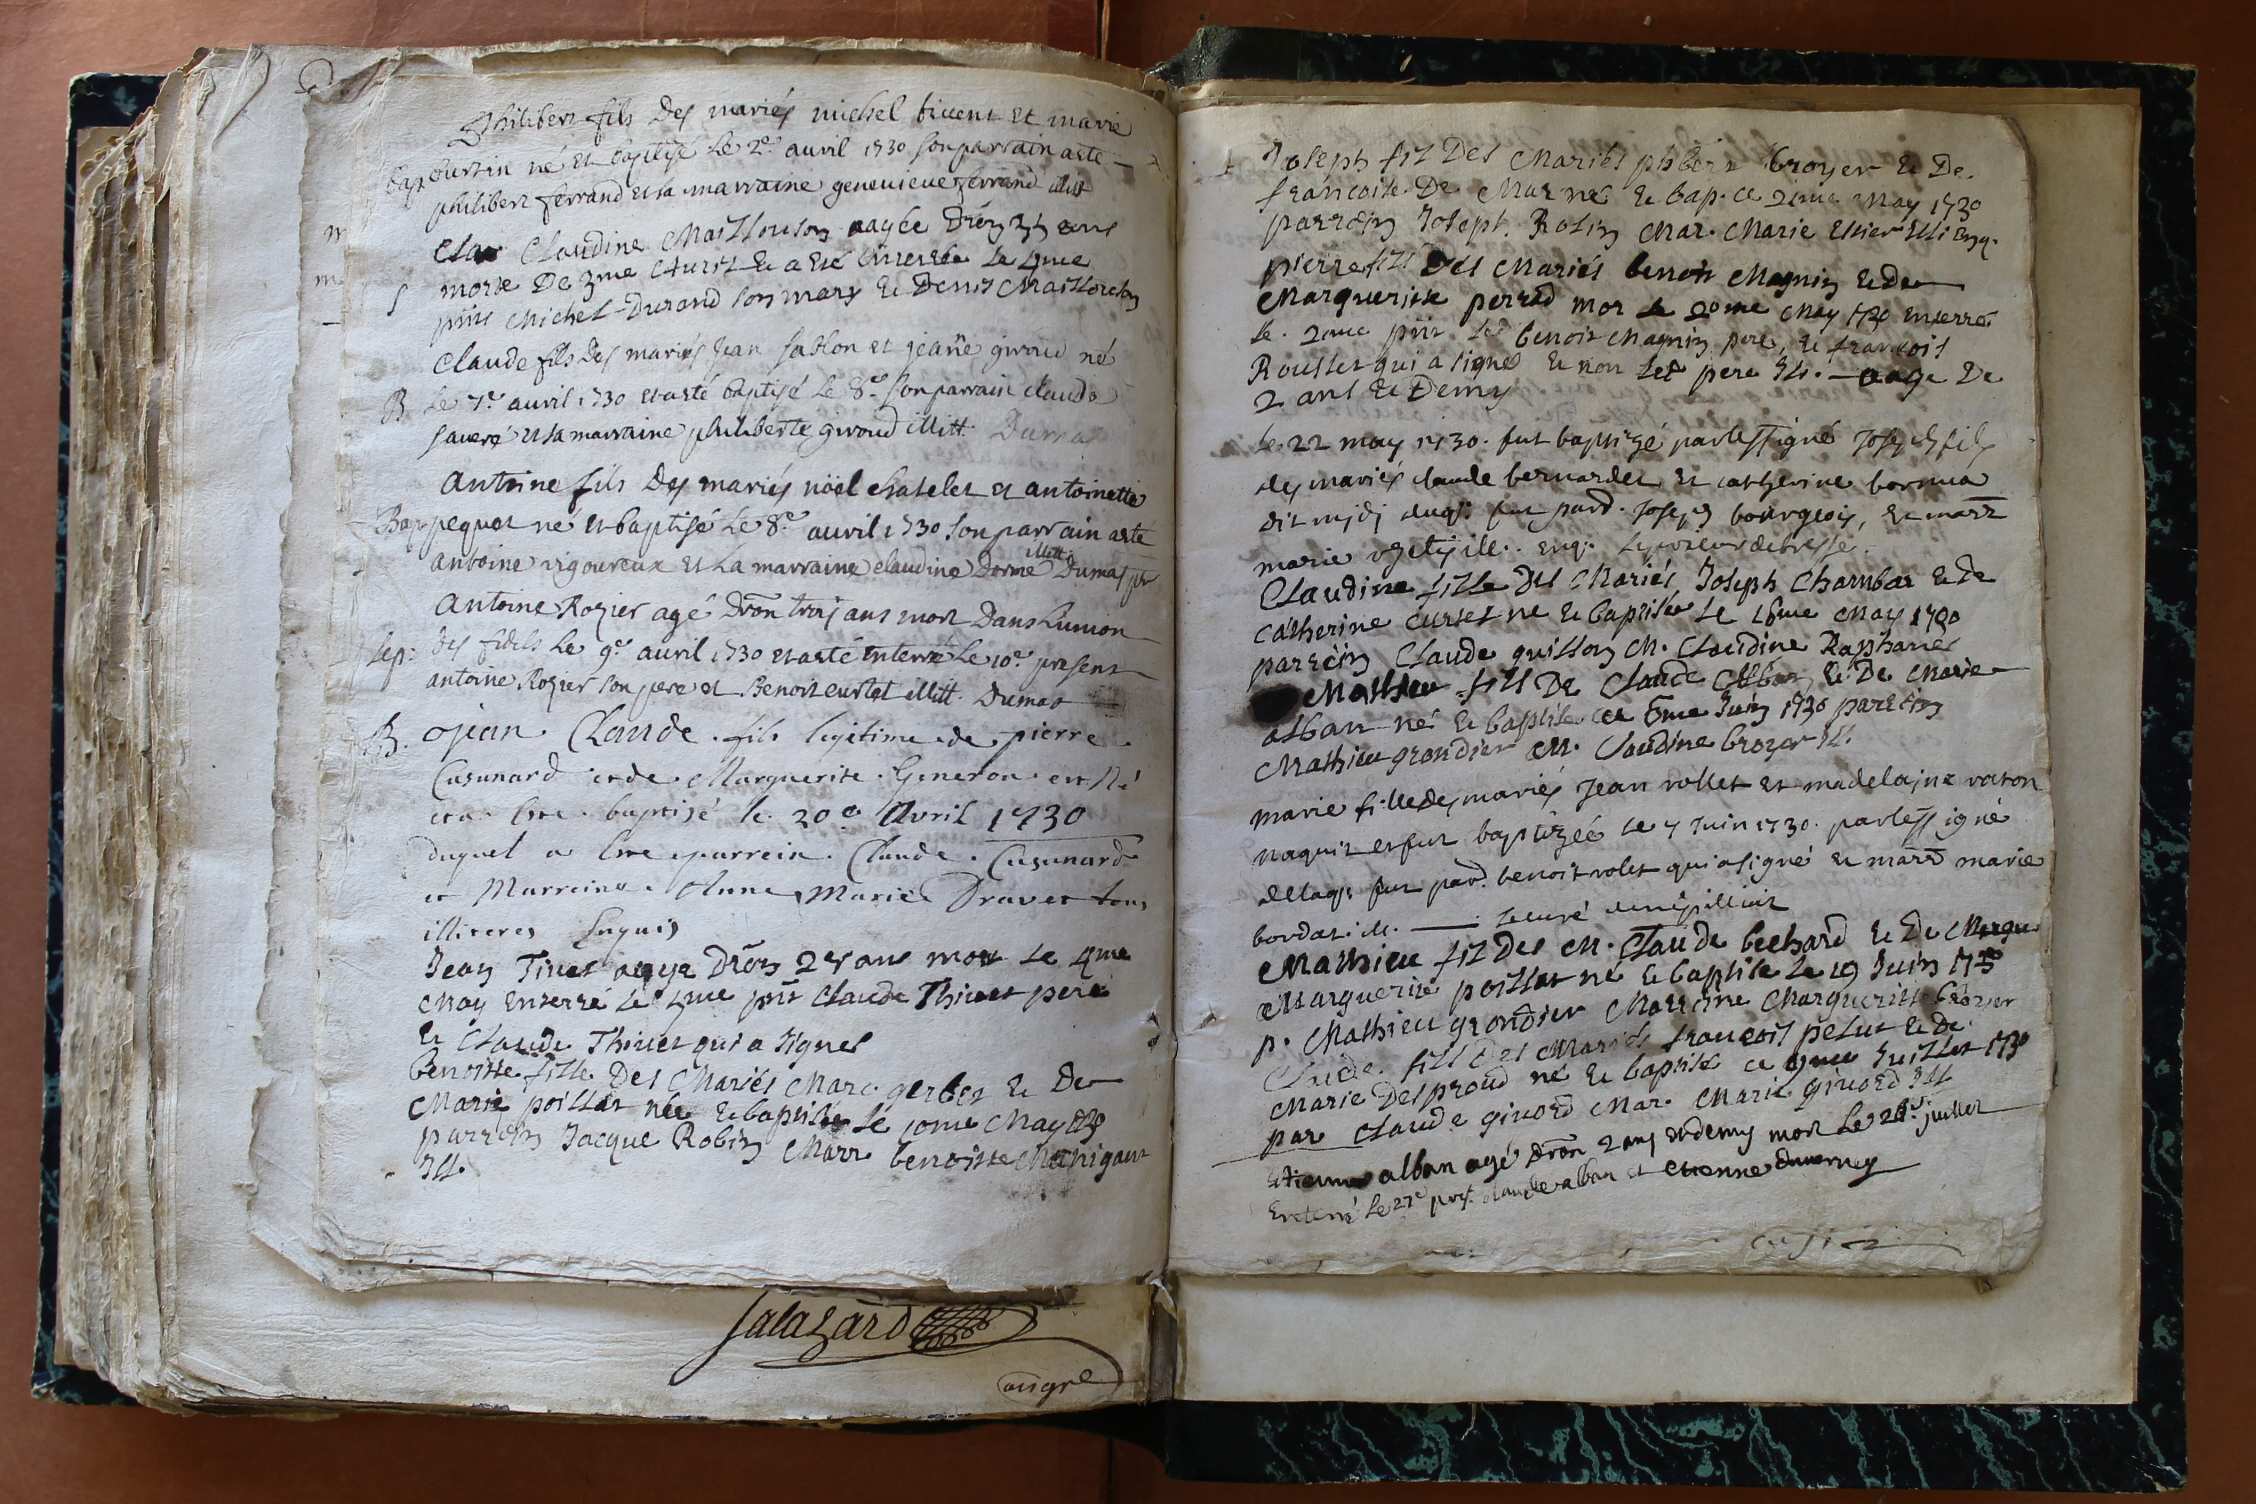 Philibert fils Des mariés michel bicent et marie
bap ourtin né et baptisé le 2e. auril 1730 son parrain a eté
philibert ferrand et sa marraine geneuieue ferrand illitt
Claudine Maillouson aagée D'erön ans
morte De 3me Auril & a Eté Enterrée Le 4me
S
pñts Michel Durand son mary & Denis Maillouson
Claude fils Des mariés Jean Sablon et jeañe giroud né
B. Le 7e. auril 1730 et a eté baptisé Le 8e. son parrain claude
et sa marraine philiberte giroud illitt. Dumas
Antoine fils Des mariés nöel chatelet et antoinette
Bap pequet né et baptisé Le 8e. auril 1730 son parrain a eté
antoine vigoureux et La marraine claudine Dormé illitt. Dumas ptr
Antoine Rozier agé Drön trois ans mort Dans Lunion
Sep: Des fidels Le 9e. auril 1730 et a eté Enterré Le 10e. present
antoine Rozier son pere et Benoit curtet illitt. Dumas
B. jean Claude fils legitime de pierre
Cusunard et de Marguerite Generon est Né
et a Etté baptisé le 20e Avril 1730
duquel a Eté parrein Claude Cusunard
et Marreine Anne Marie Dravet tous
illiteres Enquis
Jean Tivet aagé Drön ans mort Le 4me
May Enterré Le pñt Claude Thiuet pere
& Claude Thiuet qui a signé
benoitte fille Des Mariés Marc gerbet & De
Marie poillat née & baptisée Le May
parrein Jacque Robin Marr benoitte Manigant
Ill.
Salazard
Joseph fil Des Mariés phbert broyer & De
francoise De Mar né & bap. ce May 1730
parrein Joseph Rolin Mar. Marie Illi Enq.
pierre fils Des Mariés benoit Magnin & de
Marguerite perrad mor Le 20me May 1730 Enterré
le pñt Led benoit Magnin pere, & francois
Rousset qui a signé & non Led pere Ill. aage De
2 ans & Demy
Le 22 may 1730. fut baptizé par le ssigné Joseph fils
des mariés claude bernardet et catherine bornua
dit duql: fut parr. Joseph bourgeois, et marr
marie ill. enq:
Claudine fille Des Mariés Joseph Chambar & De
Catherine Curtet ne & baptisée Le 16me May 1730
parrein Claude guillon M. Claudine Raphanel
Mathieu fils De Claude Alban & De Marie
alban né & baptisé ce 6me Juin 1730 parrein
Mathieu grondier M. Claudine brozer Ill.
marie fille des mariés Jean rollet et madelajne vaton
naquit et fut baptizée Le 7 Juin 1730. par le ssigné
de laql: fut parr. benoit rolet qui a signé et marr marie
bordat ill. le curé
Mathieu fil Des M. Claude bechard & De
Marguerite poillat né & baptisé Le 19 Juin 1730
p. Mathieu grondier Marreine Margueritte brozer
Claude fils Des Mariés francois pelut & De
Marie Desproud né & baptisé ce 9me Juillet 1730
par Claude giuord Mar. Marie giuord Ill
Etienne alban agé Drön 2 ans et demy mort Le 26e. juillet
Enterré Le 27e pnt. claude alban et etienne duverney